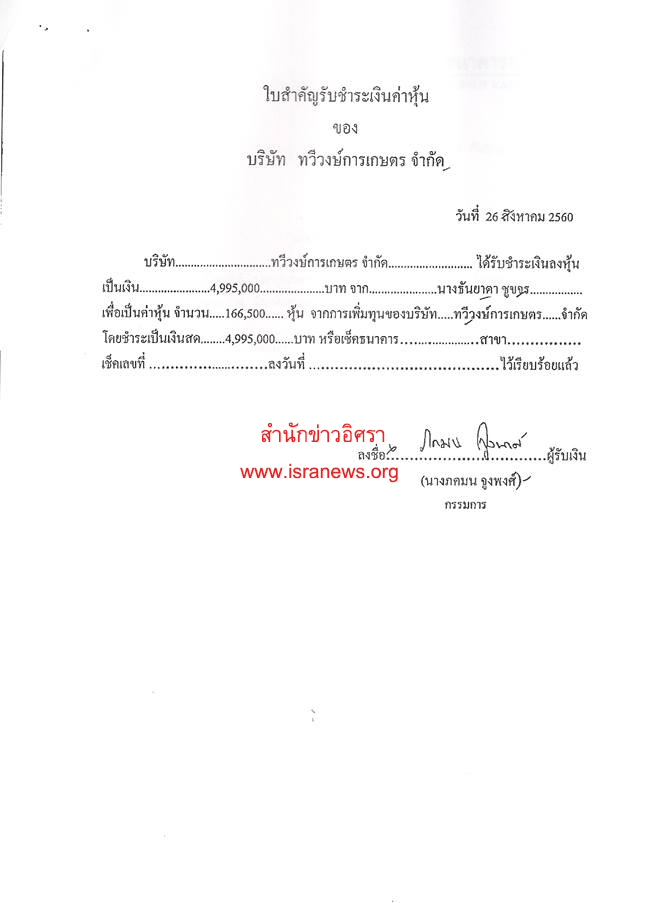 ใบสำคัญรับชำระเงินค่าหุ้น
ของ
บริษัท ทวีวงษ์การเกษตร จำกัด
วันที่ 26 สิงหาคม 2560
บริษัท...............................ทวีวงษ์การเกษตร จำกัด........................... ได้รับชำระเงินลงหุ้น
เป็นเงิน.......................4,995,000.....................บาท จาก......................นางธันยาดา ชูขจร.................
เพื่อเป็นค่าหุ้น จำนวน.....166,500...... หุ้น จากการเพิ่มทุนของบริษัท.....ทวีวงษ์การเกษตร......จำกัด
โดยชำระเป็นเงินสด........4,995,000......บาท หรือเช็คธนาคาร.........................สาขา.................
เช็คเลขที่ ..............................ลงวันที่ ..............................................ไว้เรียบร้อยแล้ว
สำนักข่าวอิศรา
ลงชื่อ.......................................ผู้รับเงิน
www.isranews.org
(นางภคมน จูงพงศ์)
กรรมการ